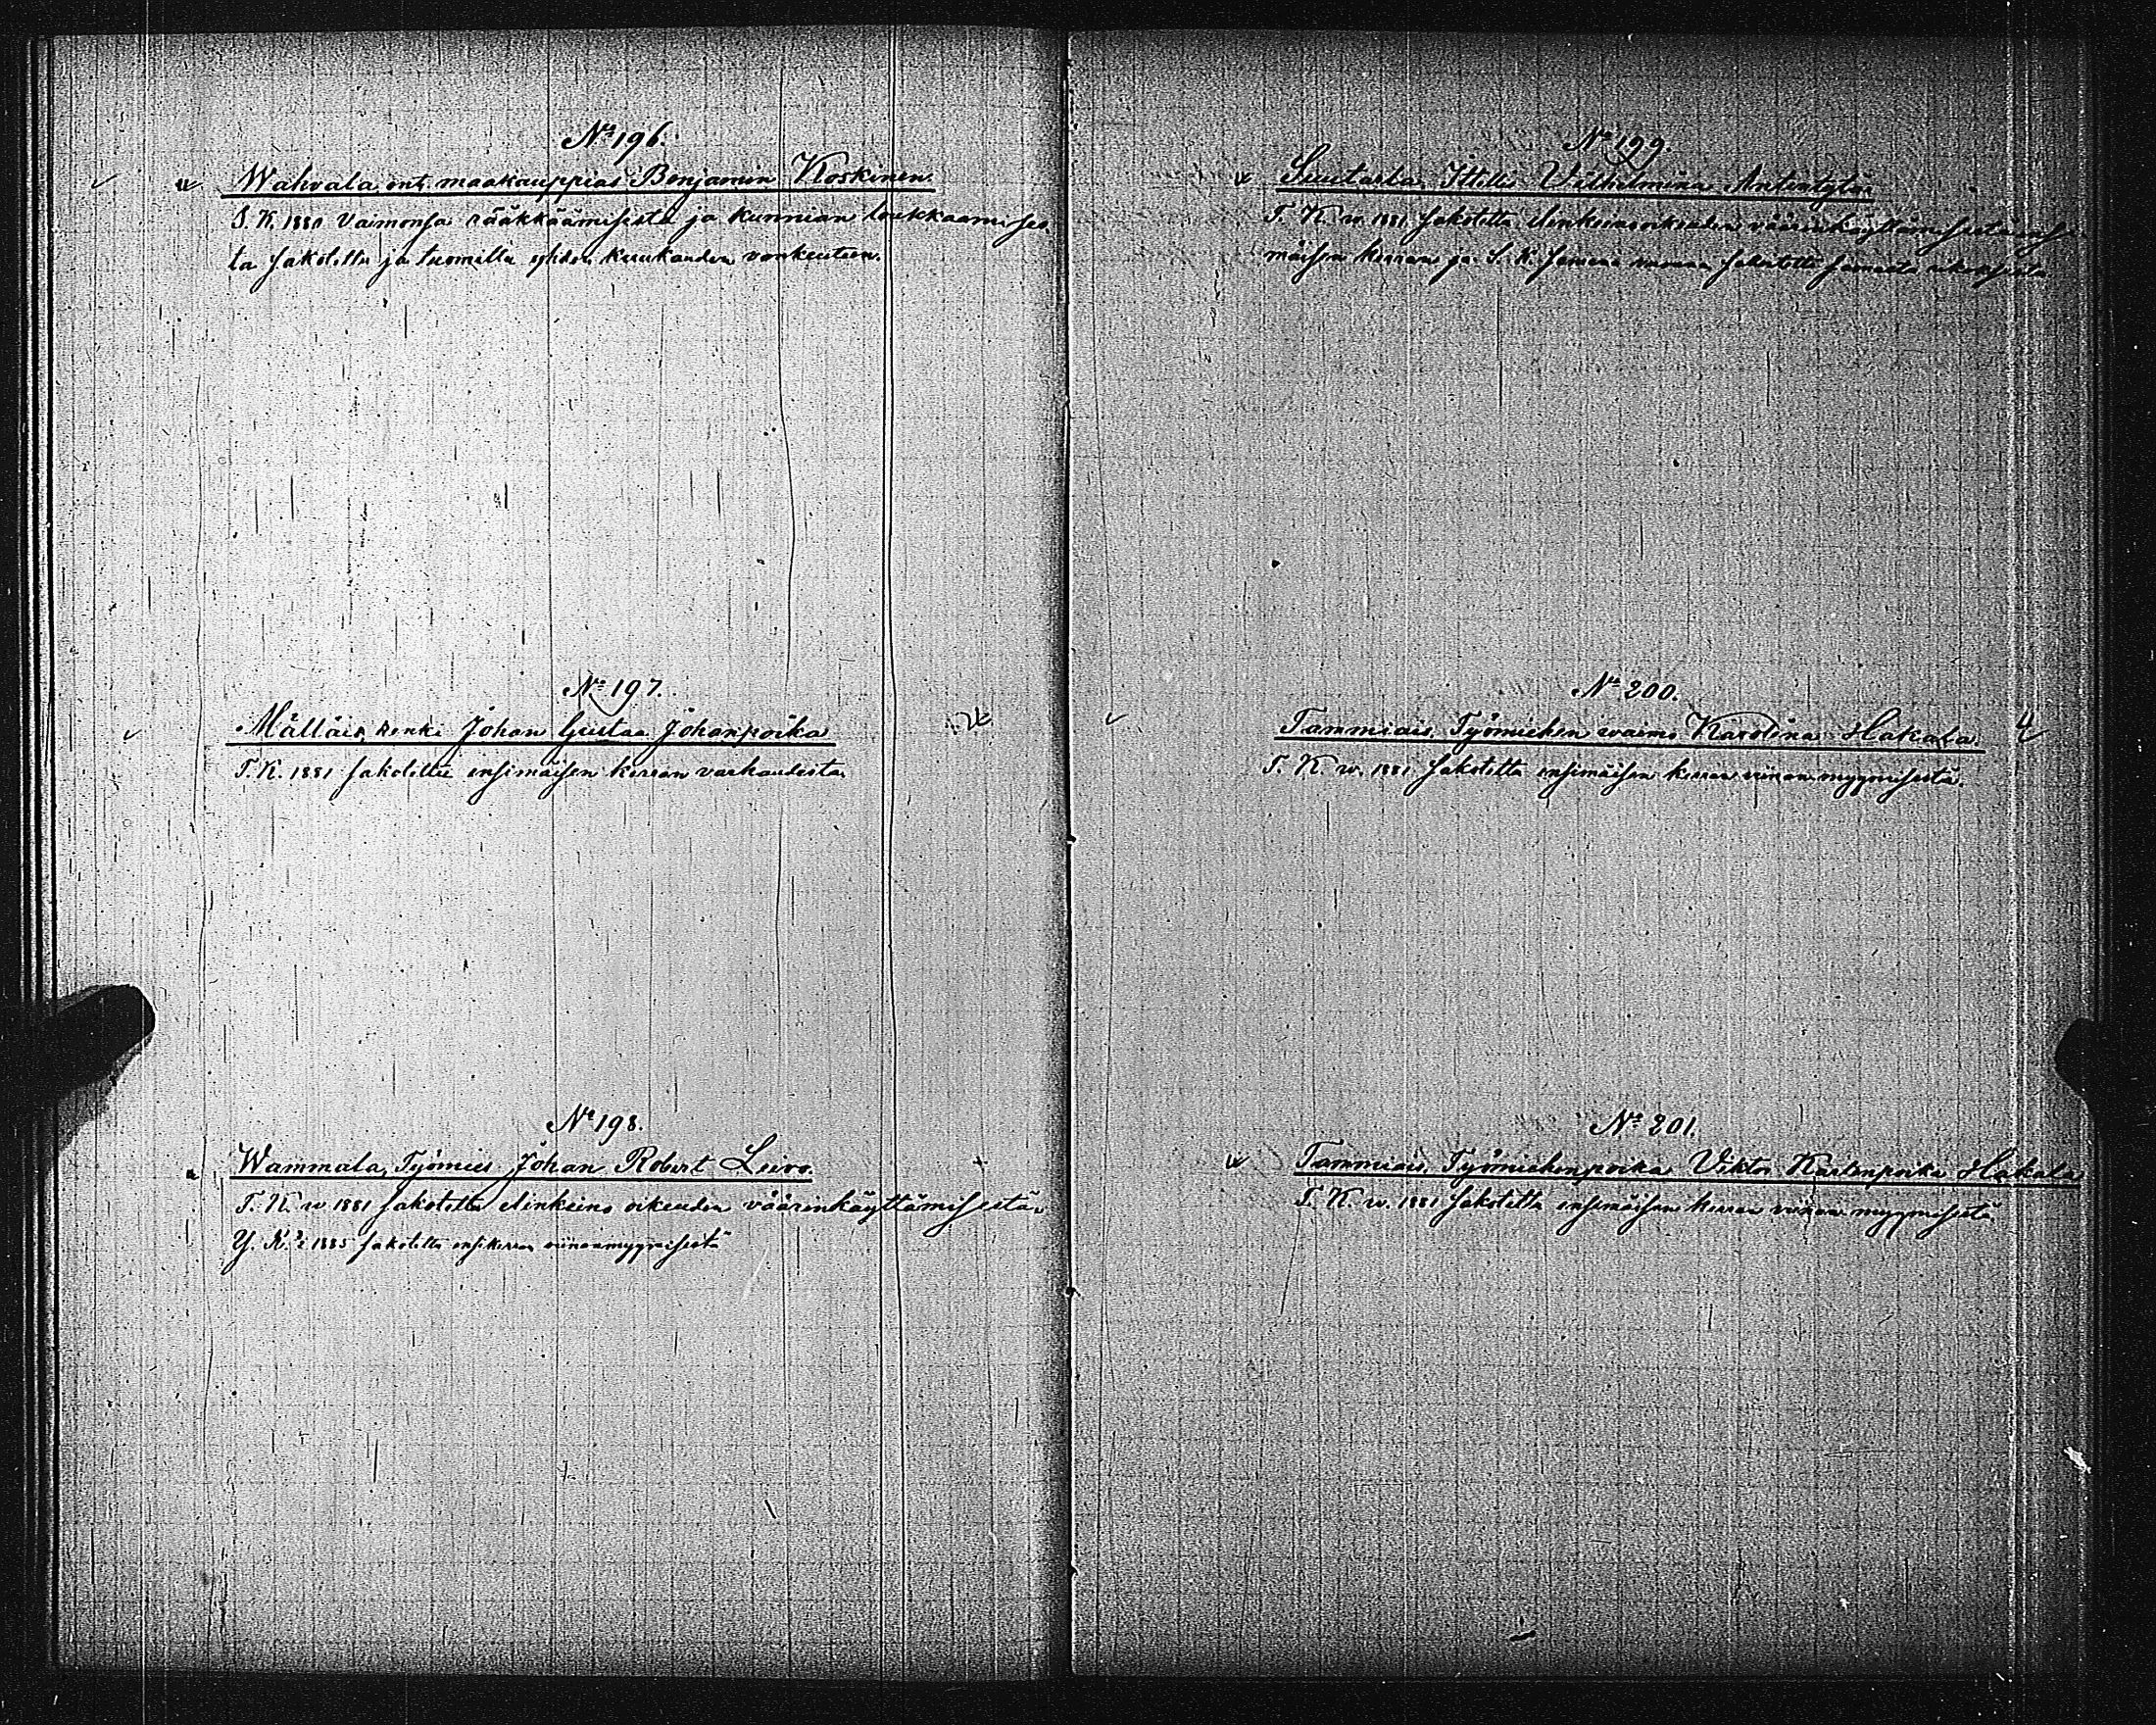 No 196.
Wahvala ent. maakauppias Benjamin Koskinen.
S. K. 1880 Vaimonsa rääkkäämisestä ja kunnian loukkaamises
ta sakotettu ja tuomittu yhden kuukauden vankeuteen.
No 197.
Mälläis, Renki Johan Gustaa Johanpoika
T. K. 1881 sakotettu ensimäisen kerran varkaudesta.
No 198.
Wammala, Työmies Johan Robert Leivo.
T. K. w 1881 sakotettu elinkeino oikeuden väärinkäyttämisestä.
Y. K. 1885 sakotettu ensikerran viinanmyymisestä
No 199.
Suutarla, Itellis Vilhelmina Antintytär
T. K. w. 1881 sakotettu elinkeino oikeuden väärinkäyttämisestä ensi
mäisen kerran ja S. K. samana vuonna sakotettu samasta rikoksesta
No 200.
Tammiais, Työmiehen waimo Karolina Hakala
T. K. w. 1881 sakotettu ensimäisen kerran viinan myymisestä.
No 201.
Tammiais, Työmiehenpoika Viktor Kaarlenpoika Hakala
T. K. w. 1881 sakotettu ensimäisen kerran viinan myymisestä